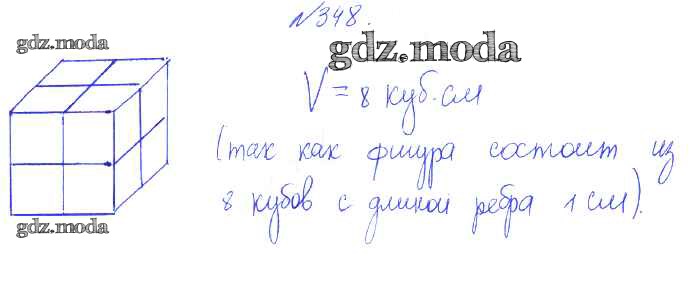 №348.
gdz.moda
gdz.moda
V = 8 куб.см
(так как фигура состоит из
8 кубов с длиной ребра 1 см).
gdz.moda